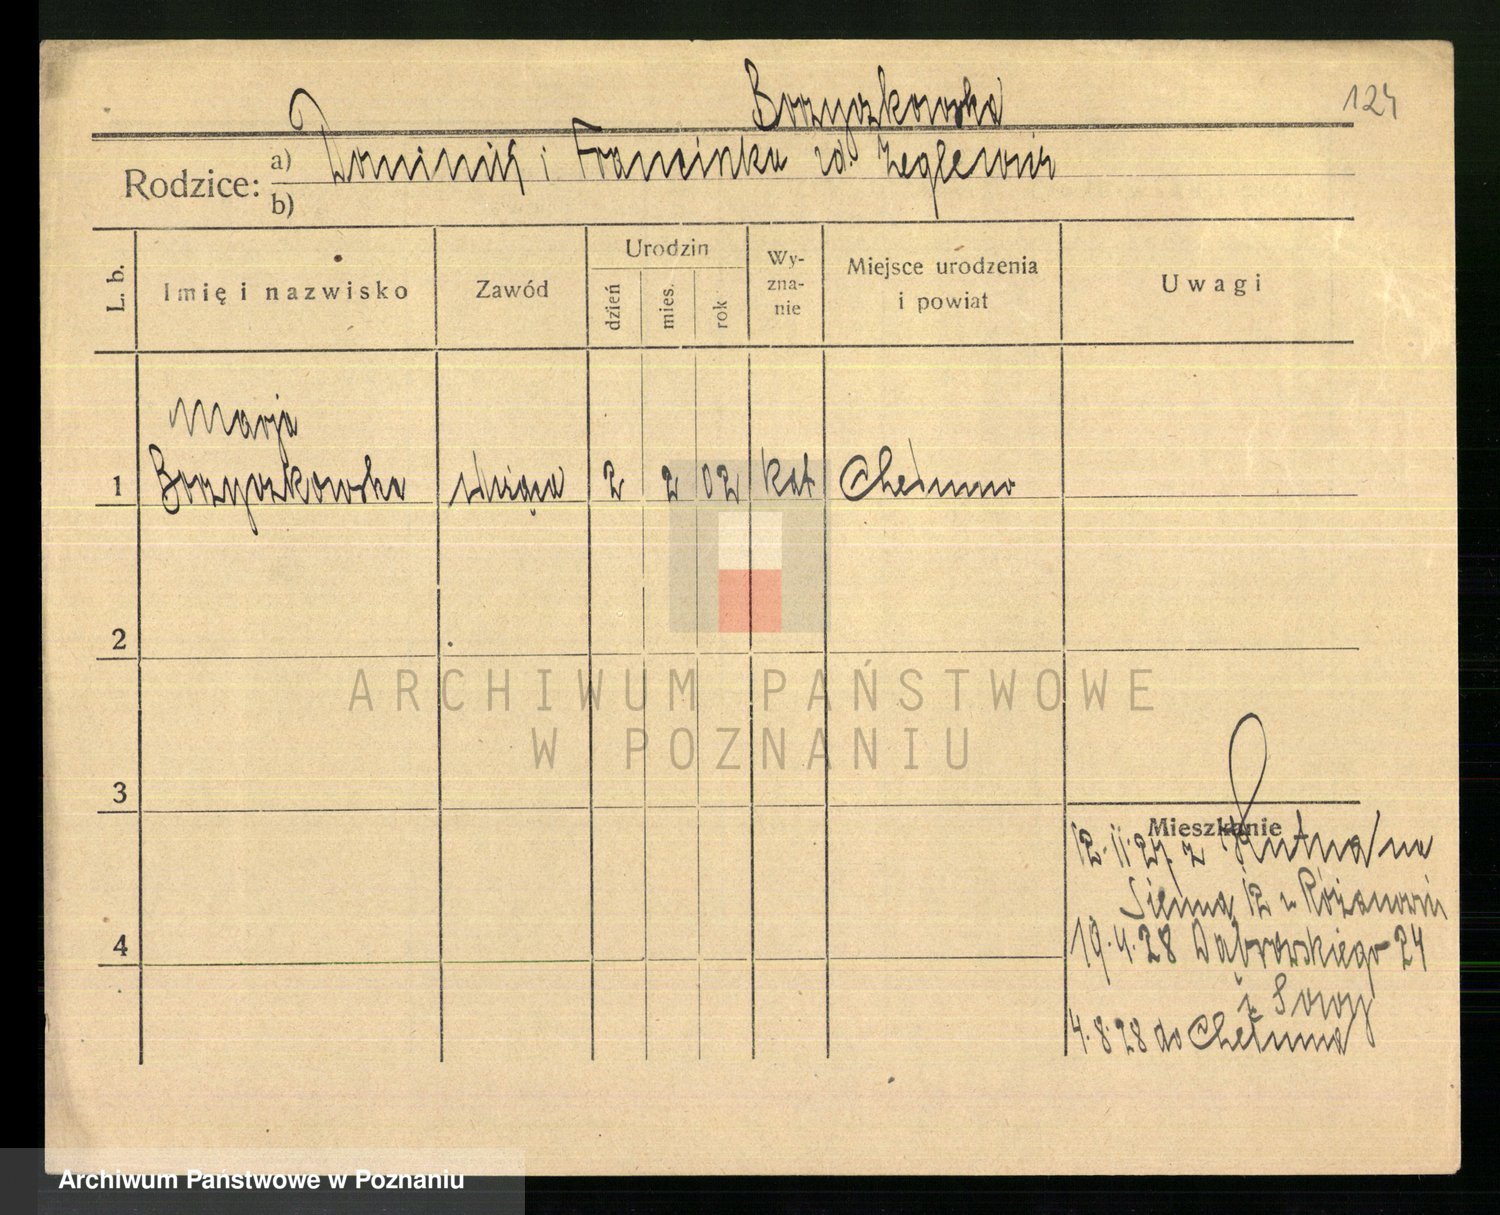 Borzyszkowska
124
Rodzice:
a) Dominik i Franciszka zd. Żeglewicz
b)
L. b.
Imię i nazwisko
Zawód
Urodzin
dzień
mies.
rok
Wy-
zna-
nie
Miejsce urodzenia
i powiat
Uwagi
Marja
1 Borzyszkowska służąca 2 2 02 kat Chełmno
2
3
4
Mieszkanie
12.11.27 z Kutna/na
Sienna 12 u Różanowi
19.4.28 Dąbrowskiego 24
u
4.8.28 do Chełmna
ARCHIWUM PAŃSTWOWE
W POZNANIU
Archiwum Państwowe w Poznaniu